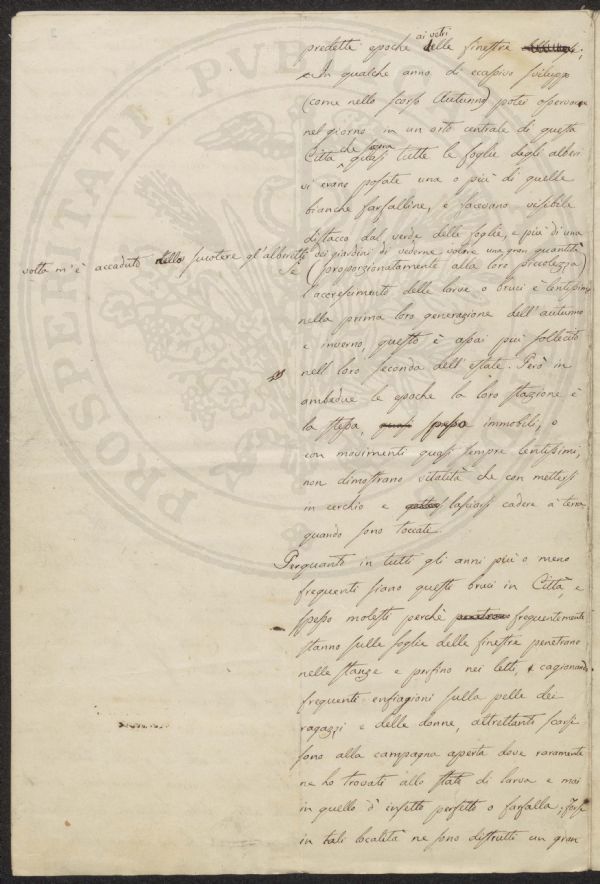 predette epoche ai vetri delle finestre
In qualche anno di eccessivo sviluppo
(come nello scorso Autunno) potei osservare
nel giorno in un orto centrale di questa
Città che sopra quasi tutte le foglie degli alberi
vi erano posate una o più di quelle
bianche farfalline, e facevano visibile
distacco dal verde delle foglie, e più di una
volta m'è accaduto nello scuotere gl'alberetti dei giardini di vederne volare una gran quantità
se (proporzionatamente alla loro piccolezza)
l'accrescimento delle larve o bruci è lentissimo
nella prima loro generazione dell'autunno
e inverno, questo è assai più sollecito
nell loro seconda dell'estate. Però in
ambedue le epoche la loro stazione è
la stessa, quasi spesso immobili, o
con movimenti quasi sempre lentissimi,
non dimostrano vitalità che con mettersi
in cerchio e lasciarsi cadere a terra
quando sono toccate.
Perquanto in tutti gli anni più o meno
frequenti siano questi bruci in Città, e
spesso molesti perchè penetrano frequentemente
stanno sulle foglie delle finestre penetrano
nelle stanze e perfino nei letti, cagionando
frequenti enfiagioni sulla pelle dei
ragazzi e delle donne, altrettanto scarsi
sono alla campagna aperta dove raramente
ne ho trovati allo stato di larva e mai
in quello d'insetto perfetto o farfalla; forse
in tali località ne sono distrutti un gran